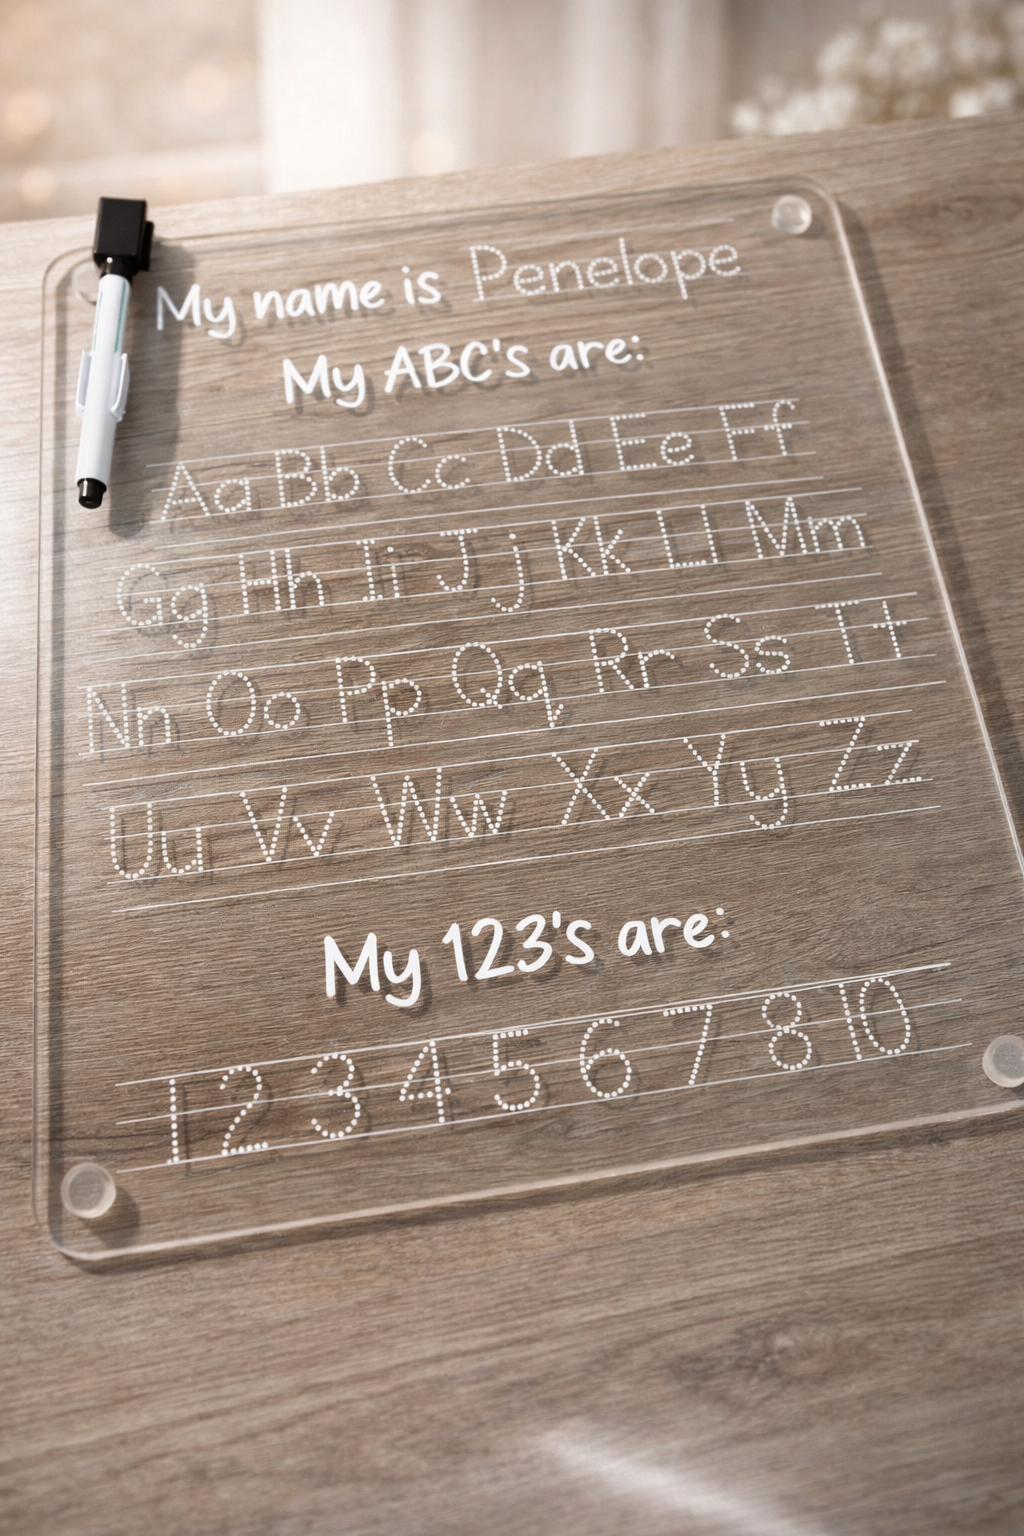 My name is Penelope
My ABC's are:
Aa Bb Cc Dd Ee Ff
Gg Hh Ii Jj Kk Ll Mm
Nn Oo Pp Qq Rr Ss Tt
Uu Vv Ww Xx Yy Zz
My 123's are:
1 2 3 4 5 6 7 8 10